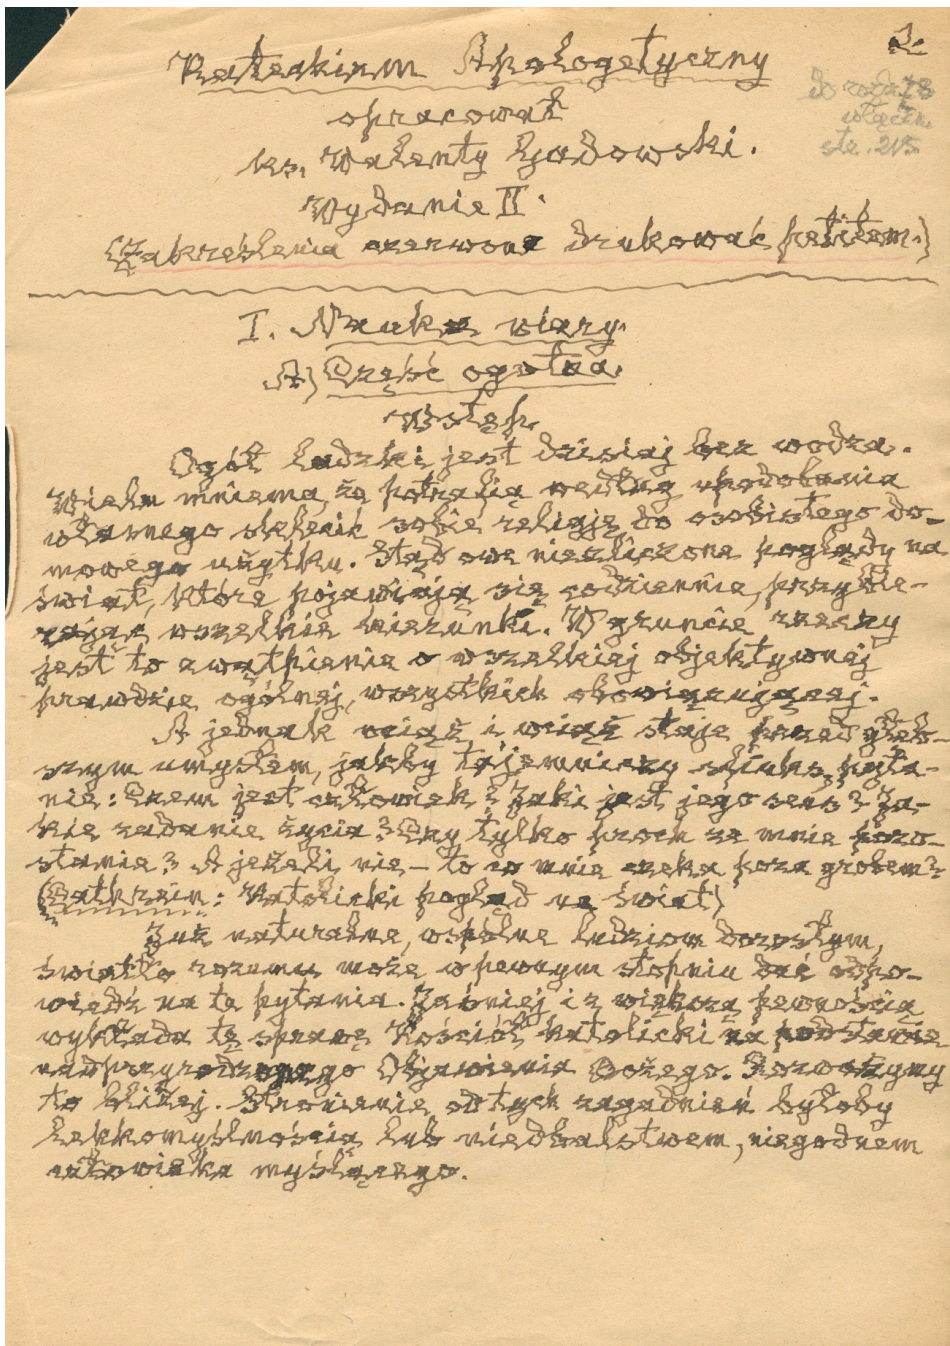 2.
Katechizm Apologetyczny
do rozdz. 18
włącz.
str. 215
opracował
ks. Walenty Gadowski.
Wydanie II.
(Zakreślenia czerwone drukować petitem.)
I. Nauka wiary.
A) Część ogólna.
Wstęp.
Ogół ludzki jest dzisiaj bez wodza.
Wielu mniema, że potrafią według upodobania
własnego sklecić sobie religję do osobistego do-
mowego użytku. Stąd owe niezliczone poglądy na
świat, które pojawiają się codziennie, przybie-
rając wszelkie kierunki. W gruncie rzeczy
jest to zwątpienie o wszelkiej objektywnej
prawdzie ogólnej, wszystkich obowiązującej.
A jednak wciąż i wciąż staje przed głęb-
szym umysłem, jakby tajemniczy sfinks, pyta-
nie: Czem jest człowiek? Jaki jest jego sens? Ja-
kie zadanie życia? Czy tylko proch ze mnie pozo-
stanie? A jeżeli nie – to co mnie czeka poza grobem?
(Cathrein: Katolicki pogląd na świat)
Już naturalne, wspólne ludziom dorosłym,
światło rozumu może w pewnym stopniu dać odpo-
wiedź na te pytania. Jaśniej i z większą pewnością
wykłada tę sprawę Kościół katolicki na podstawie
nadprzyrodzonego Objawienia Bożego. Rozważymy
to bliżej. Stronienie od tych zagadnień byłoby
lekkomyślnością lub niedbalstwem, niegodnem
człowieka myślącego.